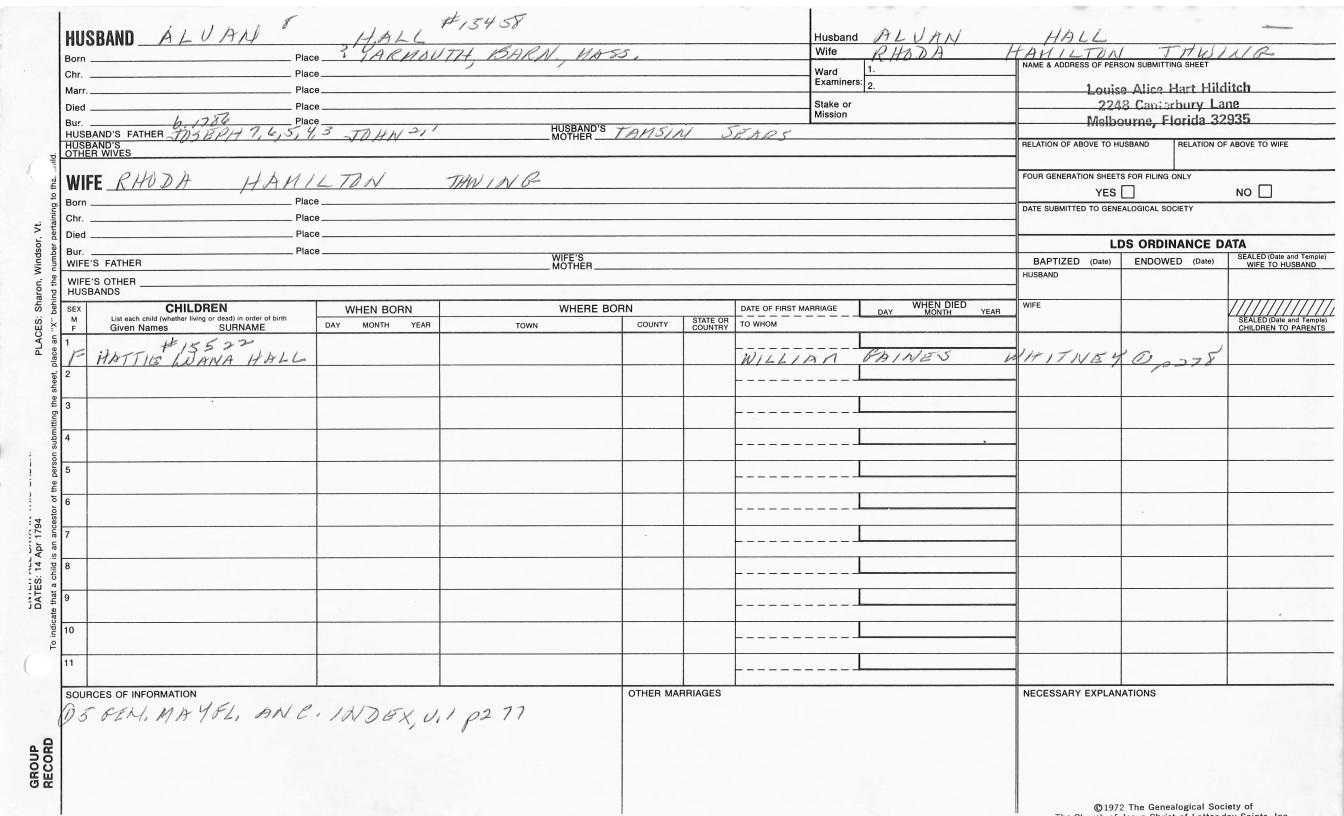 HUSBAND ALVAN 8 HALL #15458
Born Place ? YARMOUTH, BARN, MASS.
Chr. Place
Marr. Place
Died Place
Bur. Place
b. 1786
HUSBAND'S FATHER JOSEPH 7,6,5,4,3 JOHN 2,1 HUSBAND'S MOTHER TAMSIN SEARS
HUSBAND'S OTHER WIVES
WIFE RHODA HAMILTON THWING
Born Place
Chr. Place
Died Place
Bur. Place
WIFE'S FATHER WIFE'S MOTHER
WIFE'S OTHER HUSBANDS
Husband ALVAN HALL
Wife RHODA HAMILTON THWING
Ward Examiners: 1.
2.
Stake or Mission
NAME & ADDRESS OF PERSON SUBMITTING SHEET
Louise Alice Hart Hilditch
2248 Canterbury Lane
Melbourne, Florida 32935
RELATION OF ABOVE TO HUSBAND RELATION OF ABOVE TO WIFE
FOUR GENERATION SHEETS FOR FILING ONLY
YES NO
DATE SUBMITTED TO GENEALOGICAL SOCIETY
LDS ORDINANCE DATA
BAPTIZED (Date) ENDOWED (Date) SEALED (Date and Temple) WIFE TO HUSBAND
HUSBAND
WIFE
SEALED (Date and Temple) CHILDREN TO PARENTS
SEX M F
CHILDREN
List each child (whether living or dead) in order of birth
Given Names SURNAME
WHEN BORN
DAY MONTH YEAR
WHERE BORN
TOWN COUNTY STATE OR COUNTRY
DATE OF FIRST MARRIAGE
TO WHOM
WHEN DIED
DAY MONTH YEAR
1 #15522
F HATTIE LUANA HALL WILLIAM GAINES WHITNEY ① p278
2
3
4
5
6
7
8
9
10
11
SOURCES OF INFORMATION
① 5 GEN. MAYFL. ANC. INDEX, V.1 p277
OTHER MARRIAGES
NECESSARY EXPLANATIONS
©1972 The Genealogical Society of
PLACES: Sharon, Windsor, Vt.
DATES: 14 Apr 1794
To indicate that a child is an ancestor of the person submitting the sheet, place an "X" behind the number pertaining to that child.
GROUP RECORD